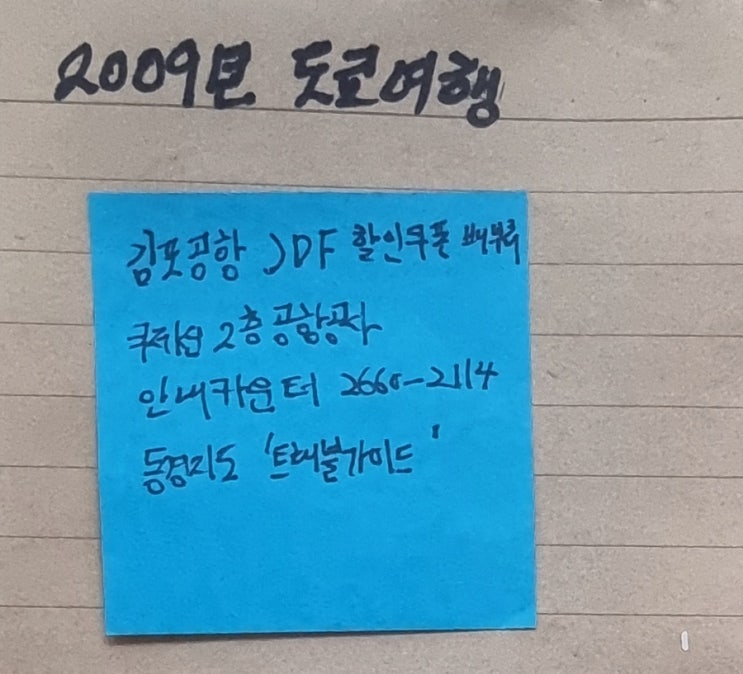 2009년 도쿄여행
김포공항 JDF 할인쿠폰
국제선 2층 공항공사
안내카운터 2660-2114
동경지도 '트래블가이드'